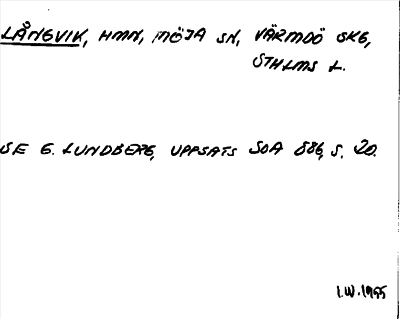 LÅNGVIK, HMN, MÖJA SN, VÄRMDÖ SKG,
STHLMS L.
SE G. LUNDBERG, UPPSATS SOA 886, S. 20.
I.W. 1955